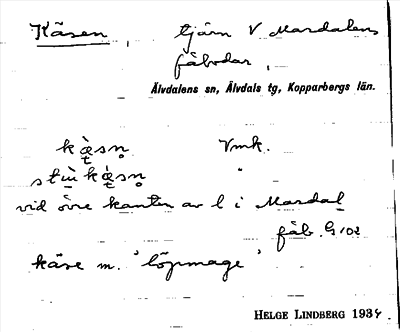 Käsen, tjärn V Mardalens
fäbodar,
Älvdalens sn, Älvdals tg, Kopparbergs län.
kæ̀sn̥ Vmk.
kæ̀sn̥ "
vid övre kanten av l i Mardal
fäb. G 102
käse m. 'löpmage'
HELGE LINDBERG 1934.